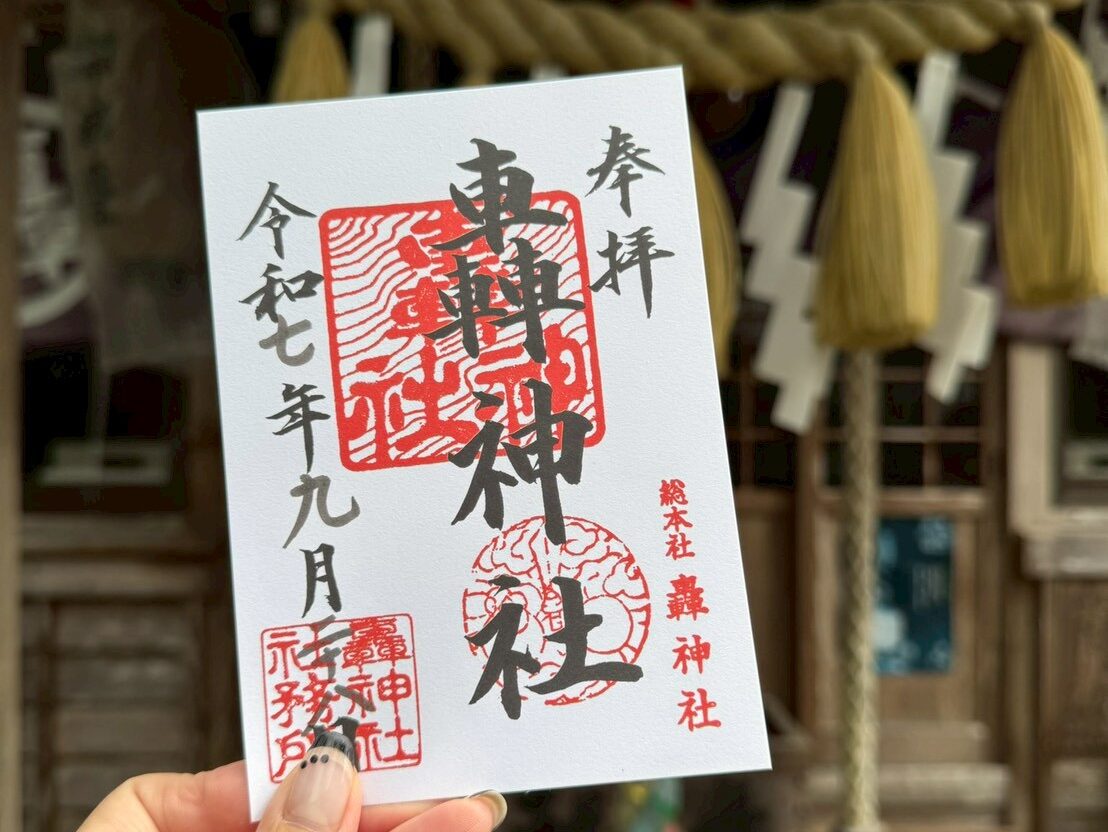 奉拝
轟神社
総本社 轟神社
令和七年九月二十八日
轟神社
社務所
轟神社